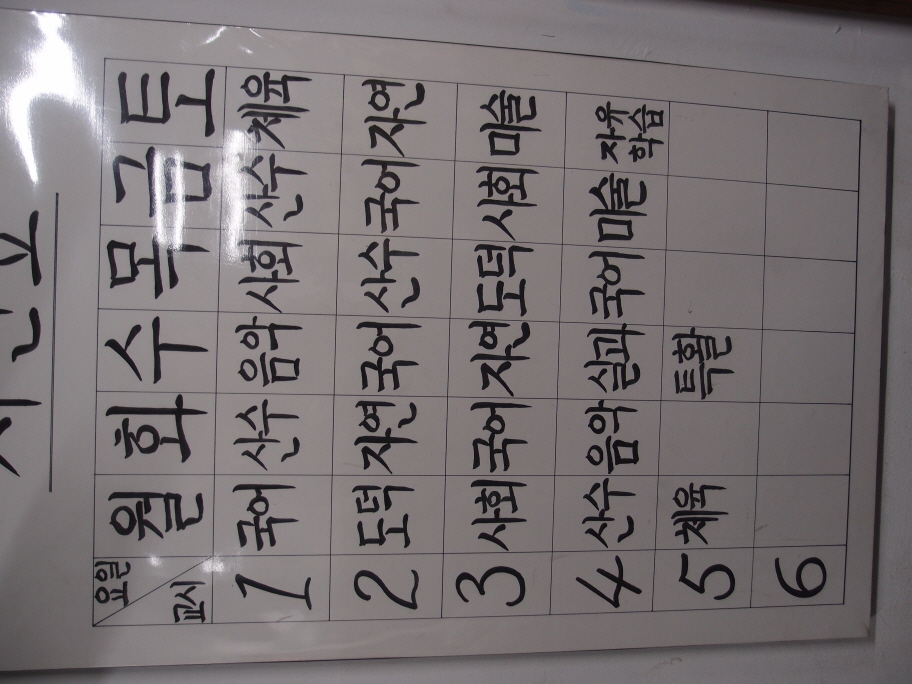 시간표
요일 월 화 수 목 금 토
교시
1 국어 산수 음악 사회 산수 체육
2 도덕 자연 국어 산수 국어 자연
3 사회 국어 자연 도덕 사회 미술
4 산수 음악 실과 국어 미술 자유학습
5 체육 특활
6